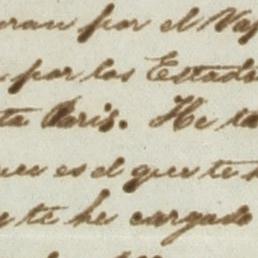 por el Vap
por los Estado
ta Paris. He
es el que te
te he cargado